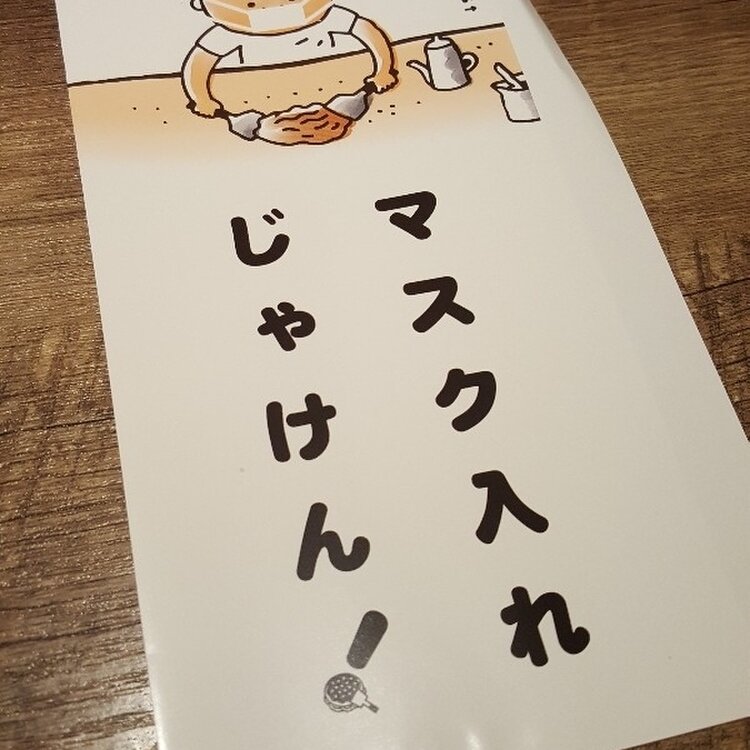 マスク入れ
じゃけん!